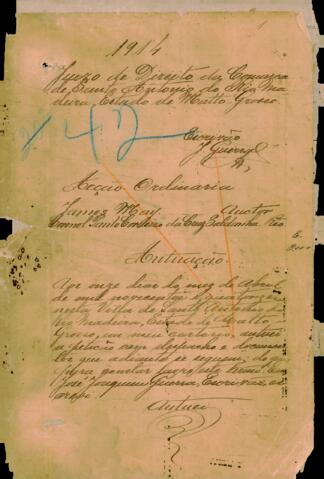 1914
Juizo de Direito da Comarca
de Santo Antonio do Rio Ma
deira, Estado de Matto Grosso
42
Escrivão
J. Guerra
Acção Ordinaria
James May Auctor
da Cruz Saldanha Réo
Autuação
Aos onze dias do mez de Abril
de mil novecentos e quatorze
nesta Villa de Santo Antonio do
Rio Madeira, Estado de Matto
Grosso, em meu cartorio, autuei
a petição com despacho e documen
que adiante se seguem; do que
para constar lavro este termo. Eu
José Joaquim Guerra, Escrivão es
crevi.
Autuei